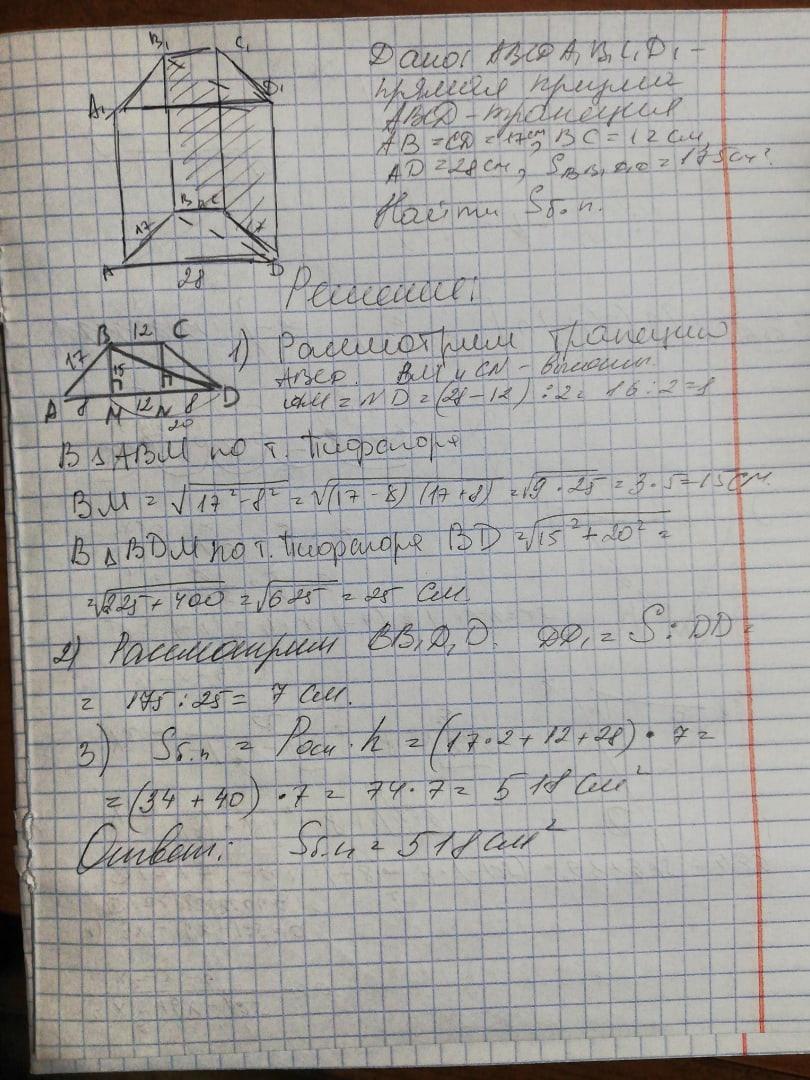 B₁ C₁
A₁ D₁
B 12 C
17 17
A D
28
Дано: ABCDA₁B₁C₁D₁ -
прямая призма
ABCD - трапеция
AB = CD = 17см, BC = 12 см,
AD = 28 см, S BB₁D₁D = 175 см².
Найти Sб.п.
Решение:
B 12 C
17 15
A 8 M 12 N 8 D
20
1) Рассмотрим трапецию
ABCD. BM и CN - высоты.
AM = ND = (28-12) : 2 = 16 : 2 = 8
В △ABM по т. Пифагора
BM = √17² - 8² = √(17-8)(17+8) = √9·25 = 3·5 = 15 см.
В △BDM по т. Пифагора BD = √15² + 20² =
= √225 + 400 = √625 = 25 см.
2) Рассмотрим BB₁D₁D. DD₁ = S : DD =
= 175 : 25 = 7 см.
3) Sб.п = Pосн · h = (17·2 + 12 + 28) · 7 =
= (34 + 40) · 7 = 74 · 7 = 518 см²
Ответ: Sб.п = 518 см²